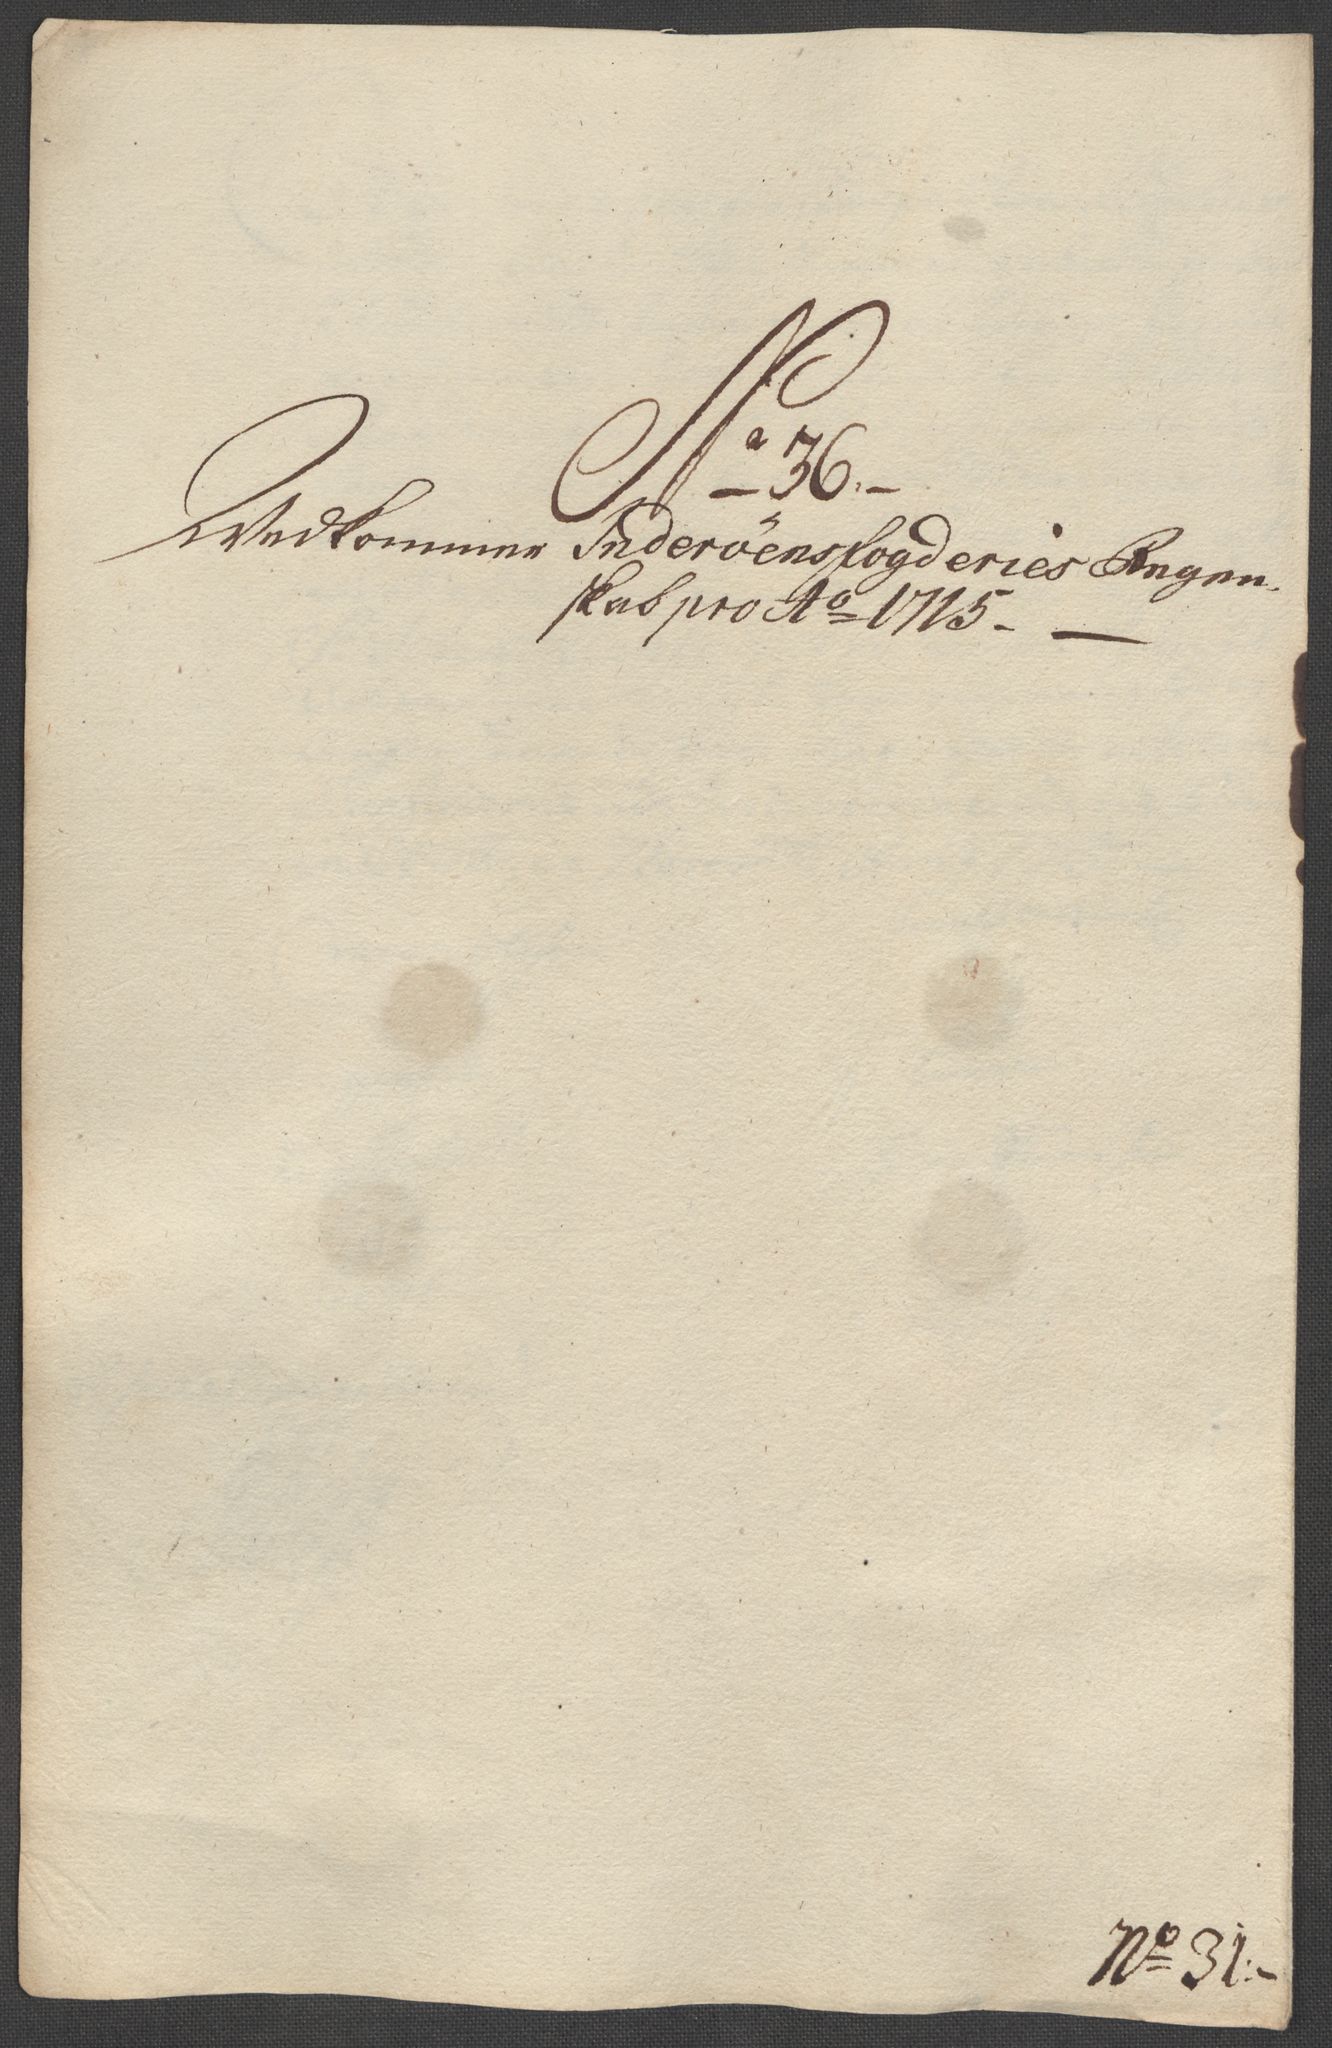 No 36.
Vedkommer Inderöens fogderies Regen-
skab pro Ao 1715.
No 31.